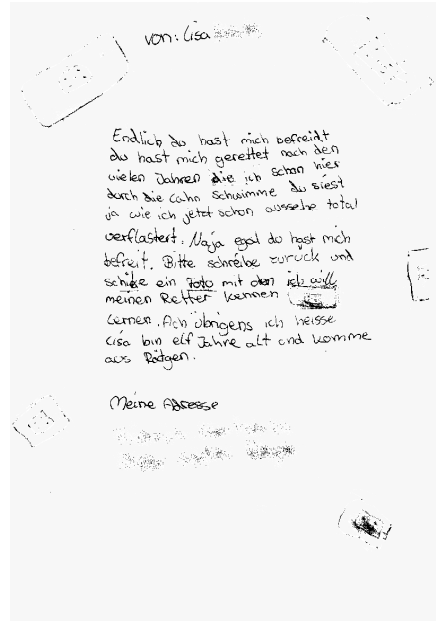 von: Lisa
Endlich du hast mich befreidt
du hast mich gerettet nach den
vielen Jahren die ich schon hier
durch die Lahn schwimme du siest
ja wie ich jetzt schon aussehe total
verflastert. Naja egal du hast mich
befreit. Bitte schreibe zurück und
schike ein Foto mit den ich will
meinen Retter kennen
lernen. Ach übrigens ich heisse
Lisa bin elf Jahre alt und komme
aus Rötgen.
Meine Adresse